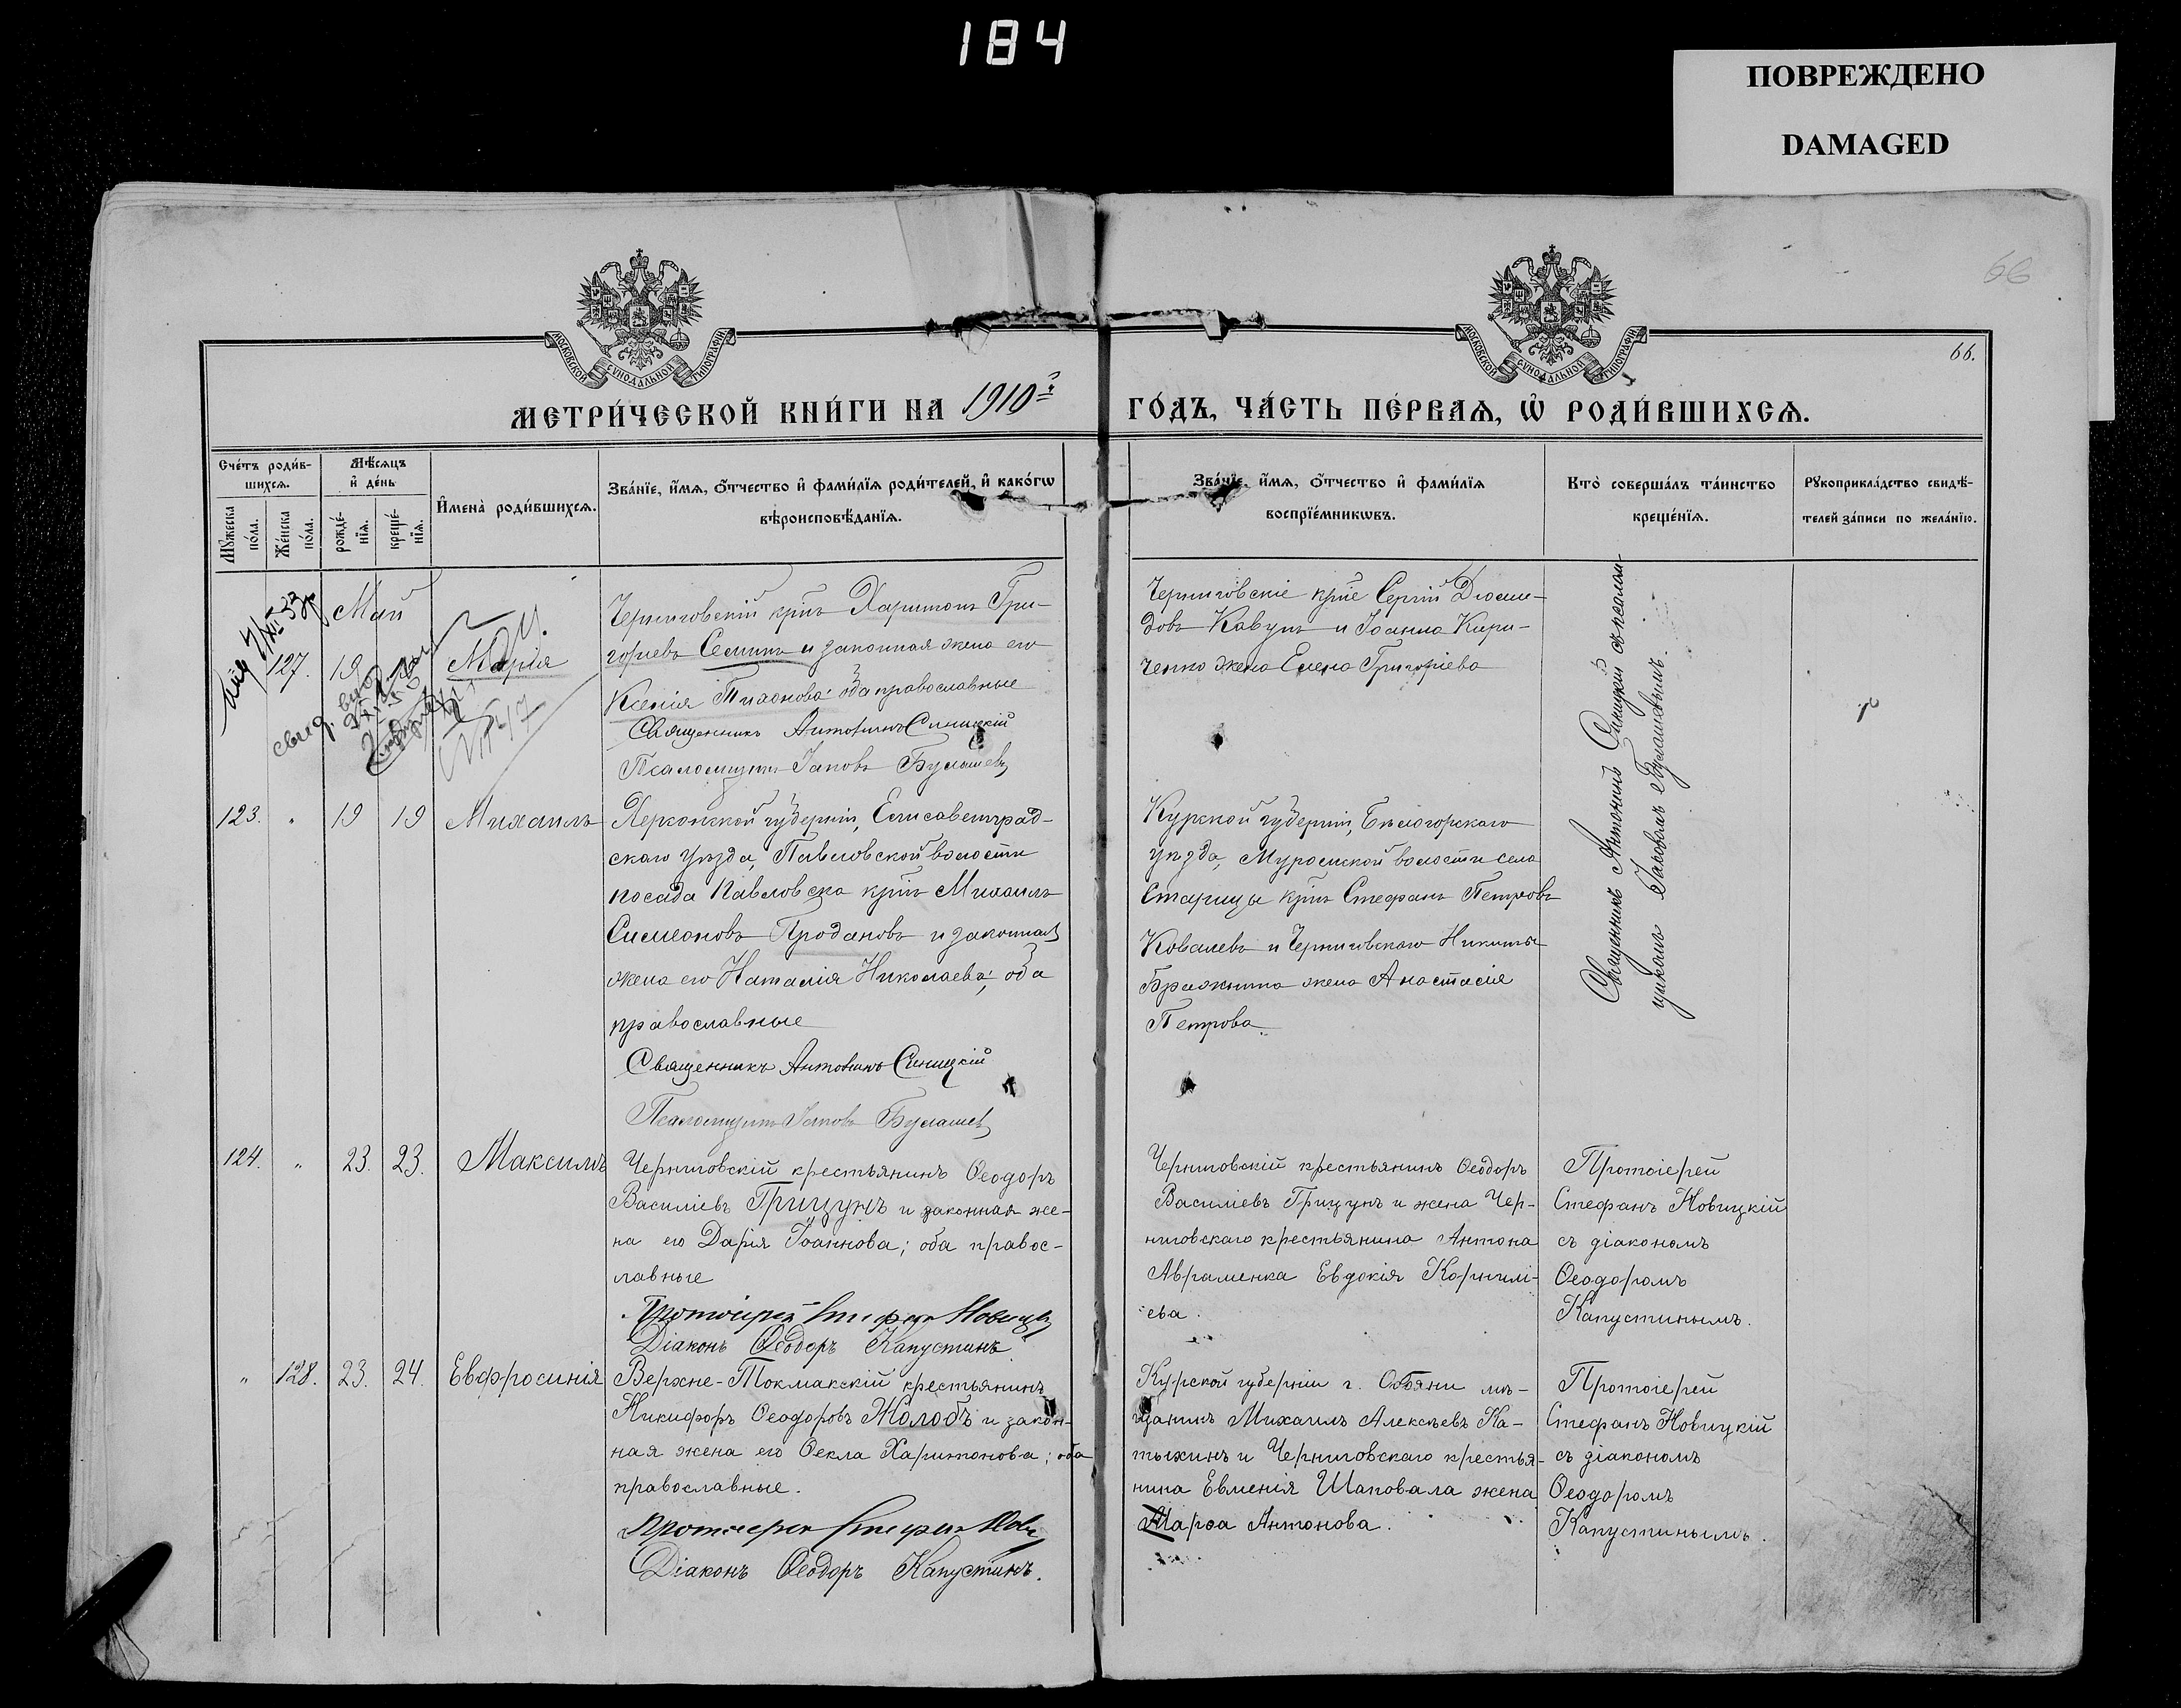 184
ПОВРЕЖДЕНО
DAMAGED
66
66.
МОСКОВСКОЙ СѴНОДАЛЬНОЙ ТИПОГРАФІИ
МОСКОВСКОЙ СѴНОДАЛЬНОЙ ТИПОГРАФІИ
МЕТРИ́ЧЕСКОЙ КНИ́ГИ НА 1910й
ГО́ДЪ, ЧА́СТЬ ПЕ́РВАѦ, Ѽ РОДИ́ВШИХСѦ.
Сче́тъ роди́в-
шихсѧ.
Мꙋ́жеска
по́ла.
Же́нска
по́ла.
Мѣ́сѧцъ
и҆ де́нь
рожде́-
нїѧ.
креще́-
нїѧ.
И҆мена̀ роди́вшихсѧ.
Зва́нїе, и҆́мѧ, ѻ҆́тчество и҆ фами́лїѧ роди́телей, и҆ како́гѡ
вѣроисповѣ́данїѧ.
Зва́нїе, и҆́мѧ, ѻ҆́тчество и҆ фами́лїѧ
воспрїе́мникѡвъ.
Кто̀ соверша́лъ та́инство
креще́нїѧ.
Рꙋкоприкла́дство свидѣ́-
телей за́писи по жела́нїю.
Май
127.
19
Марія
Черниговскій крнъ Харитонъ Гри-
горіевъ Семинъ и законная жена его
Ксенія Тихонова: оба православные
Священникъ Антонинъ Синицкій
Псаломщикъ Іаковъ Булашевъ
Черниговскіе крне Сергій Діоми-
довъ Кавунъ и Іоанна Кири-
ченко жена Елена Григоріева
Священникъ Антонинъ Синицкій съ псалом-
щикомъ Іаковомъ Булашевымъ.
123. " 19 19 Михаилъ
Херсонской губерніи, Елисаветград-
скаго уѣзда, Павловской волости
посада Павловска крнъ Михаилъ
Симеоновъ Продановъ и законная
жена его Наталія Николаева; оба
православные
Священникъ Антонинъ Синицкій
Псаломщикъ Іаковъ Булашевъ
Курской губерніи, Бѣлогорскаго
уѣзда, Муромской волости села
Старицы крнъ Стефанъ Петровъ
Ковалевъ и Черниговскаго Никиты
Бражника жена Анастасія
Петрова.
124. " 23. 23. Максимъ
Черниговскій крестьянинъ Ѳеодоръ
Василіевъ Грицунъ и законная же-
на его Дарія Іоаннова; оба правос-
лавные
Протоіерей Стефанъ Новицкій
Діаконъ Ѳеодоръ Капустинъ
Черниговскій крестьянинъ Ѳеодоръ
Василіевъ Грицунъ и жена Чер-
ниговскаго крестьянина Антона
Авраменка Евдокія Корнилі-
ева.
Протоіерей
Стефанъ Новицкій
съ діакономъ
Ѳеодоромъ
Капустинымъ.
" 128. 23. 24. Евфросинія
Верхне-Токмакскій крестьянинъ
Никифоръ Ѳеодоровъ Жолобъ и закон-
ная жена его Ѳекла Харитонова; оба
православные.
Протоіерей Стефанъ Нов
Діаконъ Ѳеодоръ Капустинъ.
Курской губерніи г. Обояни мѣ-
щанинъ Михаилъ Алексѣевъ Ка-
тыхинъ и Черниговскаго крестья-
нина Евменія Шаповала жена
Марѳа Антонова.
Протоіерей
Стефанъ Новицкій
съ діакономъ
Ѳеодоромъ
Капустинымъ.